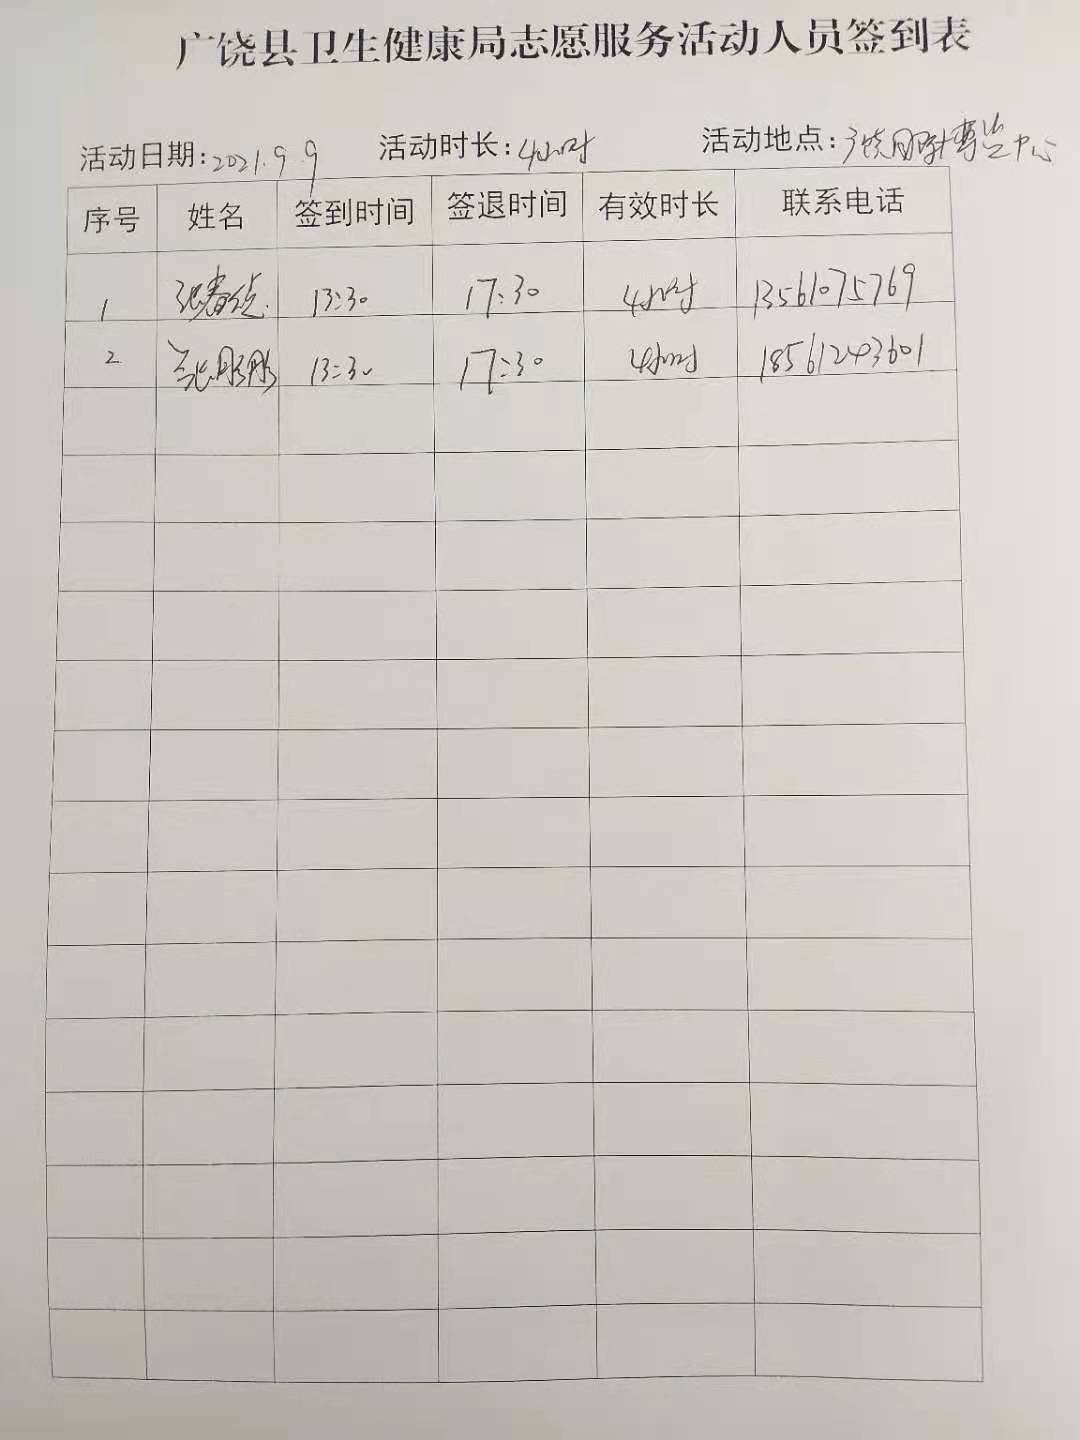 广饶县卫生健康局志愿服务活动人员签到表
活动日期:2021.9.9 活动时长:4小时 活动地点:广饶 中心
序号 姓名 签到时间 签退时间 有效时长 联系电话
1 13:30 17:30 4小时 13561075769
2 13:30 17:30 4小时 18561243601